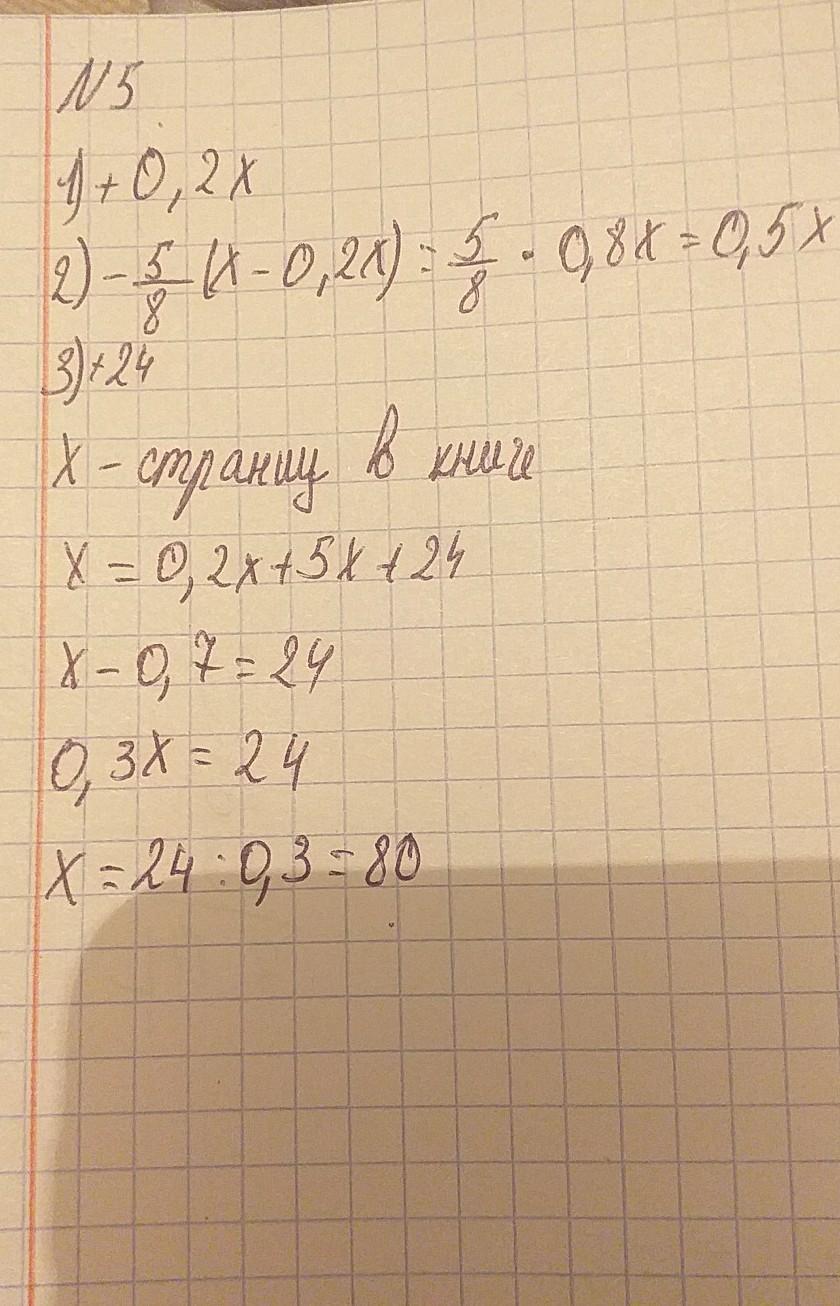 N5
1) + 0,2x
2) - 5/8 (x - 0,2x) = 5/8 · 0,8x = 0,5x
3) + 24
x - страниц в книге
x = 0,2x + 5x + 24
x - 0,7 = 24
0,3x = 24
x = 24 : 0,3 = 80